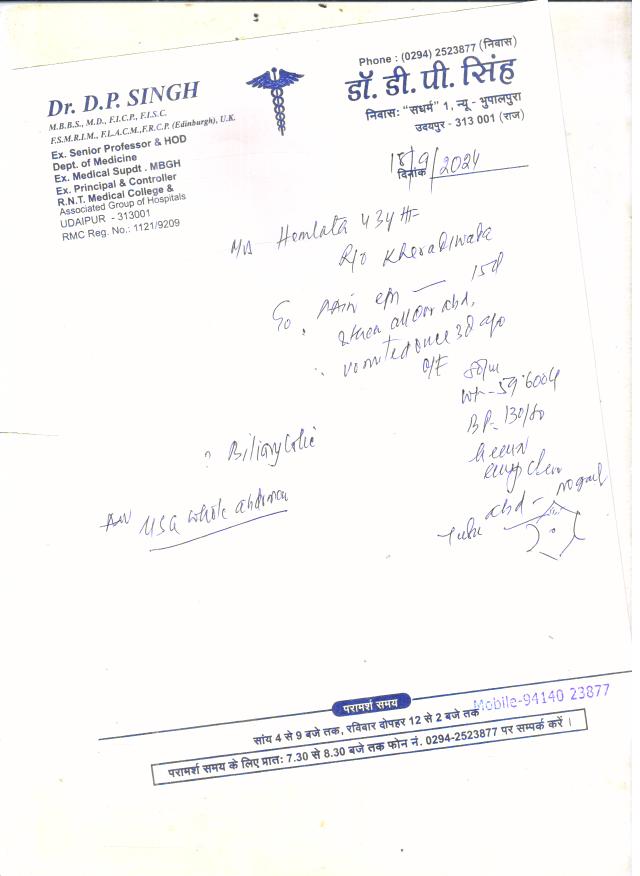 Dr. D.P. SINGH
M.B.B.S., M.D., F.I.C.P., F.I.S.C.
F.S.M.R.I.M., F.L.A.C.M.,F.R.C.P. (Edinburgh), U.K.
Ex. Senior Professor & HOD
Dept. of Medicine
Ex. Medical Supdt . MBGH
Ex. Principal & Controller
R.N.T. Medical College &
Associated Group of Hospitals
UDAIPUR - 313001
RMC Reg. No.: 1121/9209
Phone : (0294) 2523877 (निवास)
डॉ. डी. पी. सिंह
निवास: "सधर्म" 1, न्यू - भुपालपुरा
उदयपुर - 313 001 (राज)
दिनांक 18/9/2024
Hemlata 43y
R/o
PAIN 15d
all over abd,
vomited once 3d ago
O/E
BP- 130/80
? Biliary Colic
abd -
USG whole abdomen
परामर्श समय
Mobile-94140 23877
सांय 4 से 9 बजे तक, रविवार दोपहर 12 से 2 बजे तक
परामर्श समय के लिए प्रात: 7.30 से 8.30 बजे तक फोन नं. 0294-2523877 पर सम्पर्क करें ।